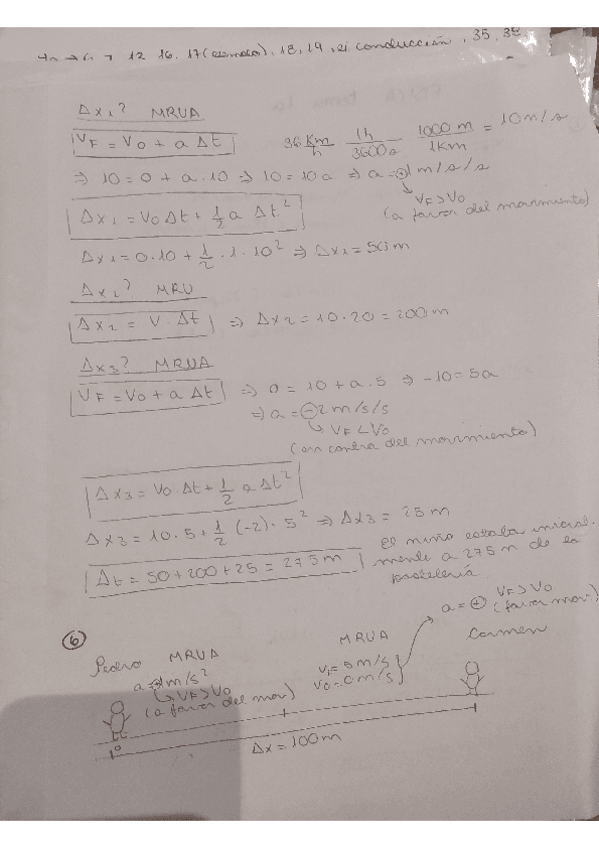 12, 16, 17 (esmero), 18, 19, ei conducción, 35, 38
Δx₁? MRUA
VF = V₀ + a Δt
36 Km/h 1h/3600s 1000 m/1Km = 10 m/s
⇒ 10 = 0 + a · 10 ⇒ 10 = 10a ⇒ a = ⊕1 m/s/s
↳ VF > V₀
(a favor del movimiento)
Δx₁ = V₀ Δt + 1/2 a Δt²
Δx₁ = 0·10 + 1/2 · 1 · 10² ⇒ Δx₁ = 50 m
Δx₂? MRU
Δx₂ = V · Δt ⇒ Δx₂ = 10 · 20 = 200 m
Δx₃? MRUA
VF = V₀ + a Δt ⇒ 0 = 10 + a · 5 ⇒ -10 = 5a
⇒ a = ⊖2 m/s/s
↳ VF < V₀
(en contra del movimiento)
Δx₃ = V₀ · Δt + 1/2 a Δt²
Δx₃ = 10 · 5 + 1/2 (-2) · 5² ⇒ Δx₃ = 25 m
Δt = 50 + 200 + 25 = 275 m
El niño estaba inicial-
mente a 275 m de la
pastelería
⑥
Pedro MRUA
a = ⊕1 m/s²
↳ VF > V₀
(a favor del mov)
MRUA
V₀ = 0 m/s
a = ⊕ VF > V₀
(favor mov.)
Carmen
Δx = 100 m